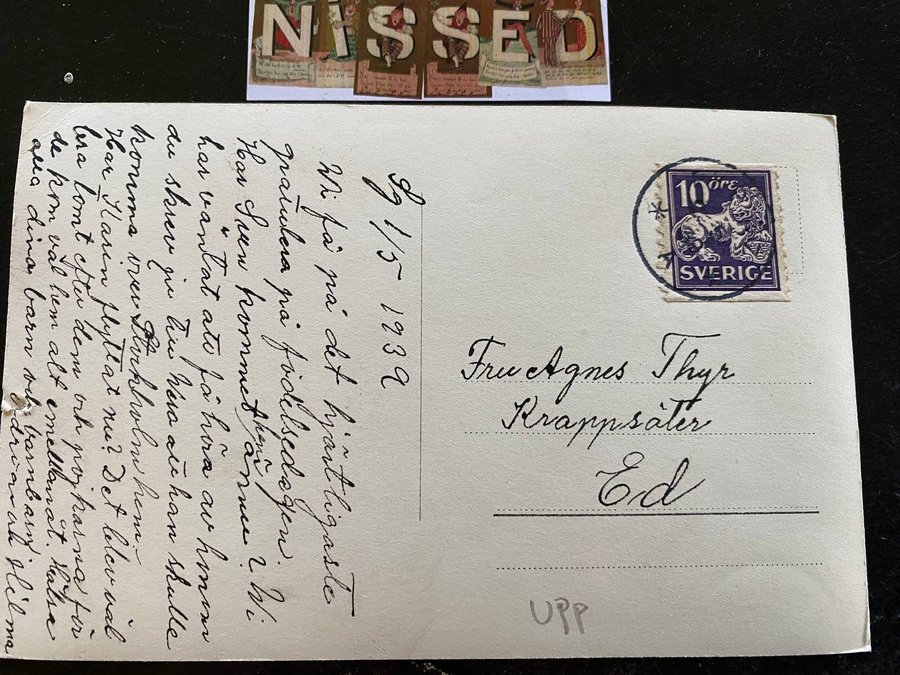 NISSED
1/5 1939
Wi få på det hjärtligaste
gratulera på födelsedagen.
Har Sven kommit hem ännu? Wi
har väntat att få höra av honom
du skrev ju till att han skulle
komma över Stockholm hem-
Har Karin flyttat nu? Det blev väl
bra tomt efter dem och pojkarna för
de kom väl hem alt emellanåt. Hälsa
alla dina barn och barnbarn
och Hilma
10 öre
SVERIGE
Fru Agnes Thyr
Krappsäter
Ed
UPP